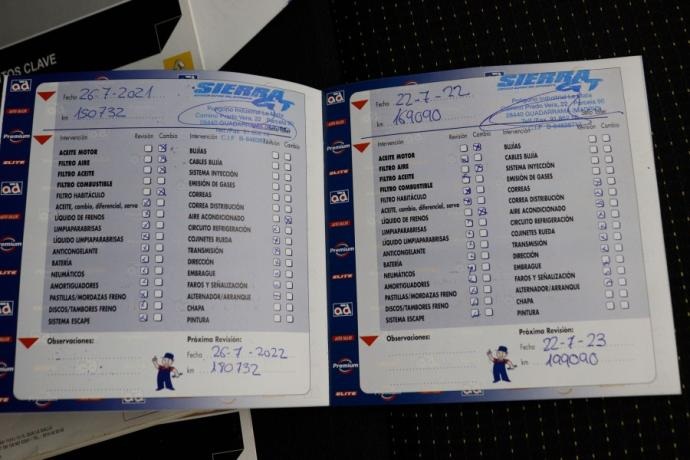 TOS CLAVE
ad
Premium
ELITE
SIERRA
Fecha 26-7-2021
Polígono Industrial La Mata
28440 GUADARRAMA
km 150732
Intervención Revisión Cambio Intervención Revisión Cambio
ACEITE MOTOR BUJÍAS
FILTRO AIRE CABLES BUJÍA
FILTRO ACEITE SISTEMA INYECCIÓN
FILTRO COMBUSTIBLE EMISIÓN DE GASES
FILTRO HABITÁCULO CORREAS
ACEITE, cambio, diferencial, servo CORREA DISTRIBUCIÓN
LÍQUIDO DE FRENOS AIRE ACONDICIONADO
LIMPIAPARABRISAS CIRCUITO REFRIGERACIÓN
LÍQUIDO LIMPIAPARABRISAS COJINETES RUEDA
ANTICONGELANTE TRANSMISIÓN
BATERÍA DIRECCIÓN
NEUMÁTICOS EMBRAGUE
AMORTIGUADORES FAROS Y SEÑALIZACIÓN
PASTILLAS/MORDAZAS FRENO ALTERNADOR/ARRANQUE
DISCOS/TAMBORES FRENO CHAPA
SISTEMA ESCAPE PINTURA
Observaciones: Próxima Revisión:
Fecha 26-7-2022
km 180732
SIERRA
Fecha 22-7-22
Polígono Industrial La Mata
Camino Prado Vera, 22 Parcela 50
28440 GUADARRAMA (MADRID)
km 169090
Intervención Revisión Cambio Intervención Revisión Cambio
ACEITE MOTOR BUJÍAS
FILTRO AIRE CABLES BUJÍA
FILTRO ACEITE SISTEMA INYECCIÓN
FILTRO COMBUSTIBLE EMISIÓN DE GASES
FILTRO HABITÁCULO CORREAS
ACEITE, cambio, diferencial, servo CORREA DISTRIBUCIÓN
LÍQUIDO DE FRENOS AIRE ACONDICIONADO
LIMPIAPARABRISAS CIRCUITO REFRIGERACIÓN
LÍQUIDO LIMPIAPARABRISAS COJINETES RUEDA
ANTICONGELANTE TRANSMISIÓN
BATERÍA DIRECCIÓN
NEUMÁTICOS EMBRAGUE
AMORTIGUADORES FAROS Y SEÑALIZACIÓN
PASTILLAS/MORDAZAS FRENO ALTERNADOR/ARRANQUE
DISCOS/TAMBORES FRENO CHAPA
SISTEMA ESCAPE PINTURA
Observaciones: Próxima Revisión:
Fecha 22-7-23
km 199090